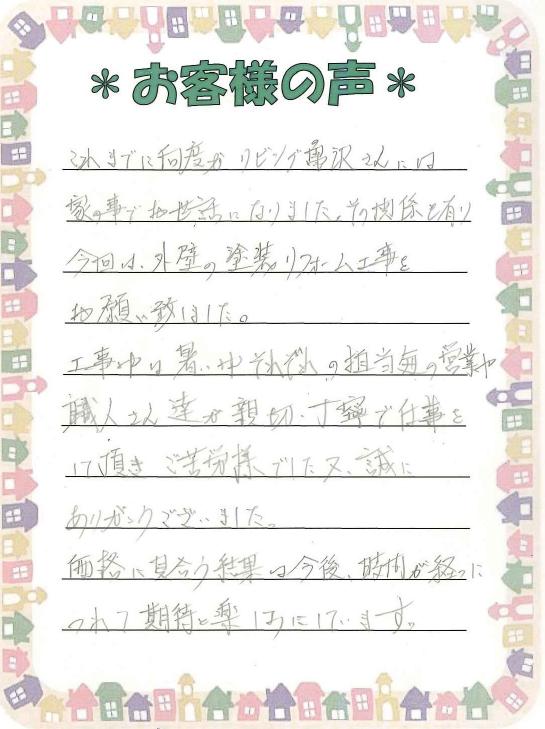 ＊お客様の声＊
これまでに何度かリビング亀沢さんには
家の事でお世話になりました。その関係も有り
今回は、外壁の塗装リフォーム工事を
お願い致しました。
工事中は暑い中それぞれの担当毎の営業や
職人さん達が親切、丁寧で仕事を
して頂きご苦労様でした又、誠に
ありがとうございました。
価格に見合う結果は今後、時間が経つに
つれて期待と楽しみにしています。